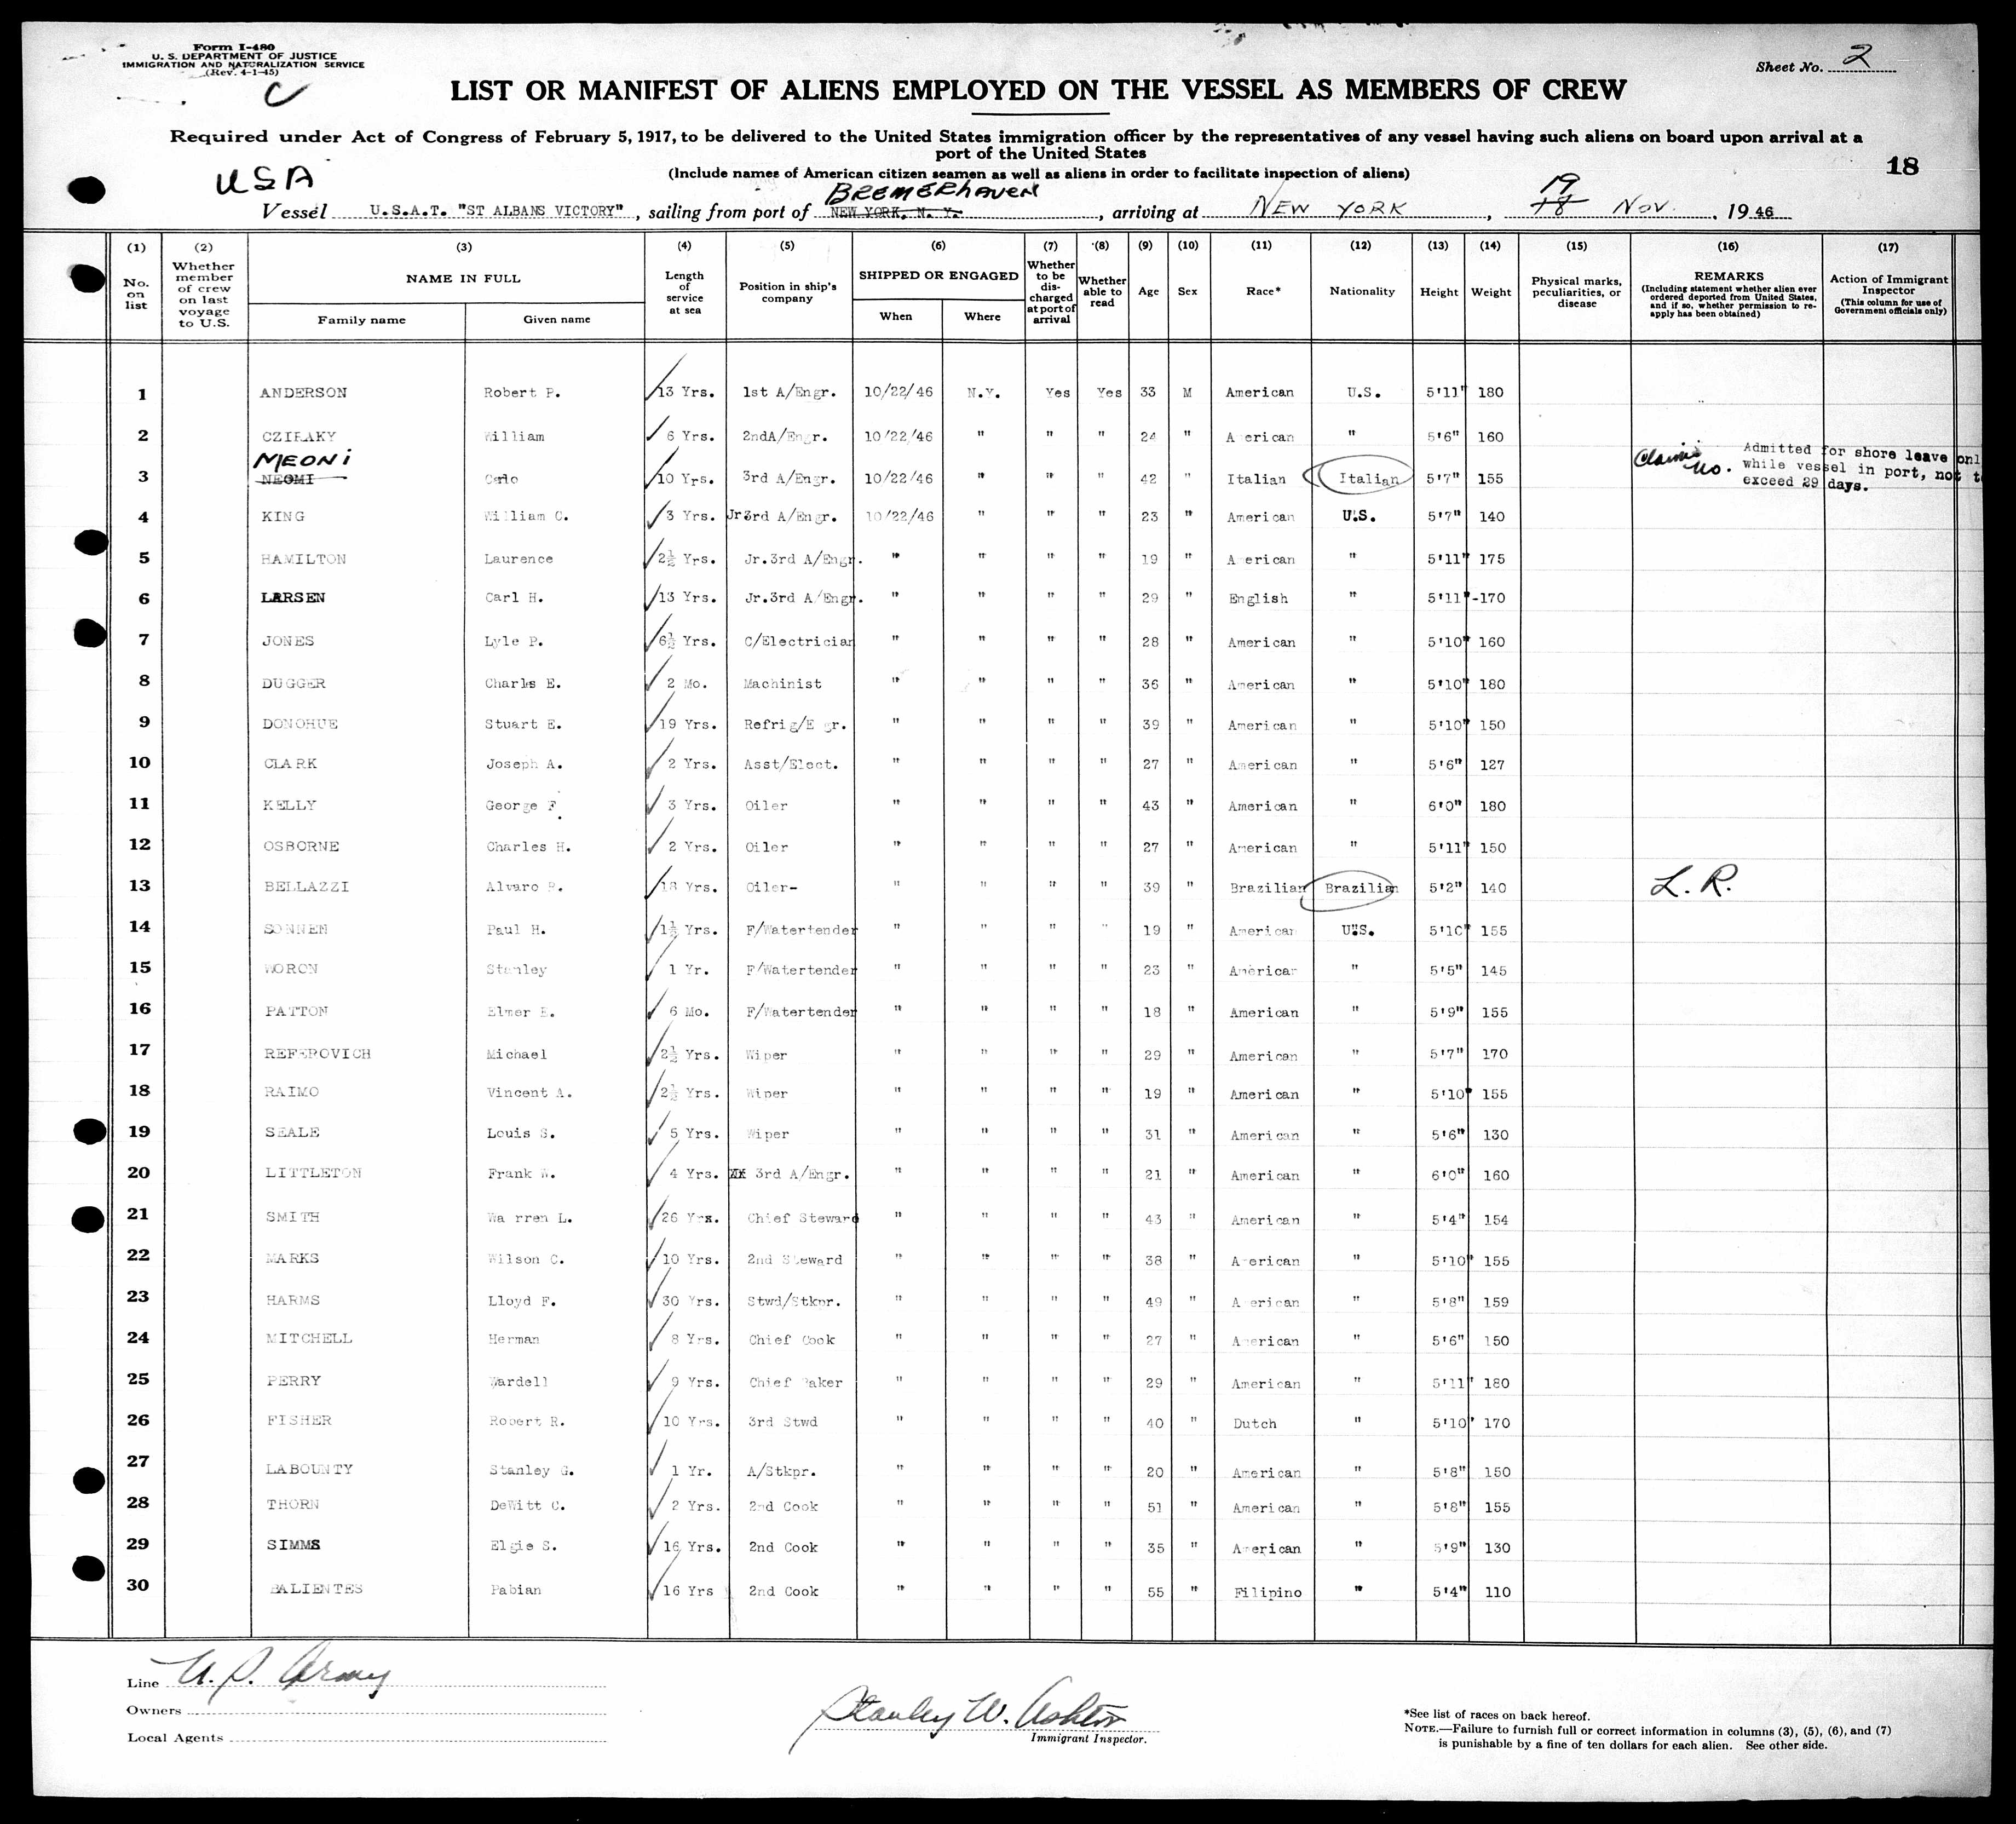 Form I-480
U. S. DEPARTMENT OF JUSTICE
IMMIGRATION AND NATURALIZATION SERVICE
(Rev. 4-1-45)
Sheet No. 2
LIST OR MANIFEST OF ALIENS EMPLOYED ON THE VESSEL AS MEMBERS OF CREW
Required under Act of Congress of February 5, 1917, to be delivered to the United States immigration officer by the representatives of any vessel having such aliens on board upon arrival at a
port of the United States
18
(Include names of American citizen seamen as well as aliens in order to facilitate inspection of aliens)
USA
BREMERHAVEN
19
Vessel U.S.A.T. "ST ALBANS VICTORY", sailing from port of NEW YORK, N. Y., arriving at NEW YORK, 18 Nov., 1946
(1) (2) (3) (4) (5) (6) (7) (8) (9) (10) (11) (12) (13) (14) (15) (16) (17)
No. on list
Whether member of crew on last voyage to U.S.
NAME IN FULL
Family name
Given name
Length of service at sea
Position in ship's company
SHIPPED OR ENGAGED
When
Where
Whether to be discharged at port of arrival
Whether able to read
Age
Sex
Race*
Nationality
Height
Weight
Physical marks, peculiarities, or disease
REMARKS
(Including statement whether alien ever ordered deported from United States, and if so, whether permission to re-apply has been obtained)
Action of Immigrant Inspector
(This column for use of Government officials only)
1 ANDERSON Robert P. 13 Yrs. 1st A/Engr. 10/22/46 N.Y. Yes Yes 33 M American U.S. 5'11" 180
2 CZIRAKY William 6 Yrs. 2ndA/Engr. 10/22/46 " " " 24 " A erican " 5'6" 160
MEONI
3 NEOMI Carlo 10 Yrs. 3rd A/Engr. 10/22/46 " " " 42 " Italian Italian 5'7" 155 Claims no. Admitted for shore leave onl
while vessel in port, not t
exceed 29 days.
4 KING William C. 3 Yrs. Jr3rd A/Engr. 10/22/46 " " " 23 " American U.S. 5'7" 140
5 HAMILTON Laurence 2½ Yrs. Jr.3rd A/Engr. " " " " 19 " A erican " 5'11" 175
6 LARSEN Carl H. 13 Yrs. Jr.3rd A/Engr. " " " " 29 " English " 5'11"-170
7 JONES Lyle P. 6½ Yrs. C/Electrician " " " " 28 " American " 5'10" 160
8 DUGGER Charls E. 2 Mo. Machinist " " " " 36 " American " 5'10" 180
9 DONOHUE Stuart E. 19 Yrs. Refrig/E gr. " " " " 39 " American " 5'10" 150
10 CLARK Joseph A. 2 Yrs. Asst/Elect. " " " " 27 " American " 5'6" 127
11 KELLY George F. 3 Yrs. Oiler " " " " 43 " American " 6'0" 180
12 OSBORNE Charles H. 2 Yrs. Oiler " " " " 27 " American " 5'11" 150
13 BELLAZZI Alvaro 18 Yrs. Oiler- " " " " 39 " Brazilian Brazilian 5'2" 140 L. R.
14 SONNEN Paul H. 1½ Yrs. F/Watertender " " " " 19 " American U.S. 5'10" 155
15 WORON Stanley 1 Yr. F/Watertender " " " " 23 " American " 5'5" 145
16 PATTON Elmer E. 6 Mo. F/Watertender " " " " 18 " American " 5'9" 155
17 REFEROVICH Michael 2½ Yrs. Wiper " " " " 29 " American " 5'7" 170
18 RAIMO Vincent A. 2½ Yrs. Wiper " " " " 19 " American " 5'10" 155
19 SEALE Louis S. 5 Yrs. Wiper " " " " 31 " American " 5'6" 130
20 LITTLETON Frank W. 4 Yrs. 3rd A/Engr. " " " " 21 " American " 6'0" 160
21 SMITH Wa rren L. 26 Yrs. Chief Steward " " " " 43 " American " 5'4" 154
22 MARKS Wilson C. 10 Yrs. 2nd Steward " " " " 38 " A erican " 5'10" 155
23 HARMS Lloyd F. 30 Yrs. Stwd/Stkpr. " " " " 49 " A erican " 5'8" 159
24 MITCHELL Herman 8 Yrs. Chief Cook " " " " 27 " American " 5'6" 150
25 PERRY Wardell 9 Yrs. Chief Baker " " " " 29 " American " 5'11" 180
26 FISHER Robert R. 10 Yrs. 3rd Stwd " " " " 40 " Dutch " 5'10" 170
27 LABOUNTY Stanley G. 1 Yr. A/Stkpr. " " " " 20 " American " 5'8" 150
28 THORN DeWitt C. 2 Yrs. 2nd Cook " " " " 51 " American " 5'8" 155
29 SIMMS Elgie S. 16 Yrs. 2nd Cook " " " " 35 " American " 5'9" 130
30 BALIENTES Fabian 16 Yrs 2nd Cook " " " " 55 " Filipino " 5'4" 110
Line U. S. Army
Owners
Local Agents
Stanley W. Ashton
Immigrant Inspector.
*See list of races on back hereof.
NOTE.—Failure to furnish full or correct information in columns (3), (5), (6), and (7)
is punishable by a fine of ten dollars for each alien. See other side.